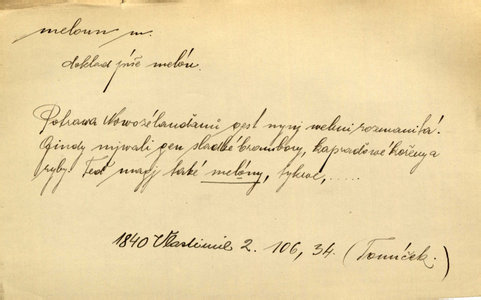 meloun m.
doklad píše melón.
Potrawa Nowozélanďanů gest nyný welmi rozmanitá.
Gindy mýwali gen sladké brambory, kapraďowé kořeny a
ryby. Teď magý také melóny, tykwe, .....
1840 Vlastimil 2. 106, 34. (Tomíček.)